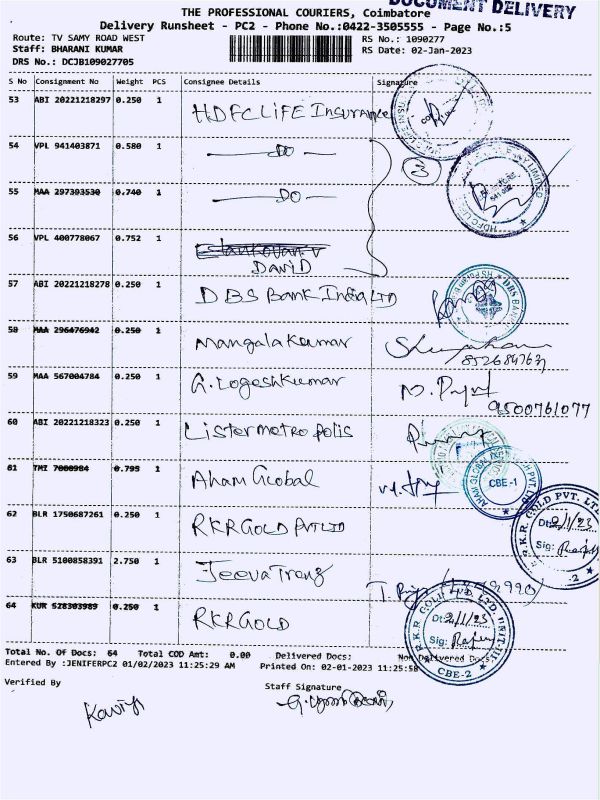 DOCUMENT DELIVERY
THE PROFESSIONAL COURIERS, Coimbatore
Delivery Runsheet - PC2 - Phone No.:0422-3505555 - Page No.:5
Route: TV SAMY ROAD WEST RS No.: 1090277
Staff: BHARANI KUMAR RS Date: 02-Jan-2023
DRS No.: DCJB109027705
S No Consignment No Weight PCS Consignee Details Signature
53 ABI 20221218297 0.250 1 HDFC LIFE Insurance
54 VPL 941403871 0.580 1 DO
3
55 MAA 297393530 0.740 1 DO
56 VPL 400778067 0.752 1
DAVID
57 ABI 20221218278 0.250 1 DBS Bank India LTD
DBS BANK
58 MAA 296476942 0.250 1 Mangala Kumar
59 MAA 567004784 0.250 1 G. Logesh Kumar
9500761077
60 ABI 20221218323 0.250 1 Lister metro polis
61 TMI 7000984 0.795 1 Aham Global
CBE-1
62 BLR 1750687261 0.250 1 RKR GOLD PVT LTD
R.K.R. GOLD PVT. LTD.
Dt: 2/1/23
Sig:
-2
63 BLR 5100858391 2.750 1 Jeeva Trenz
64 KUR 528303989 0.250 1 RKR GOLD
R.K.R. GOLD PVT. LTD. UNIT-III
Dt: 2/1/23
Sig:
CBE-2
Total No. Of Docs: 64 Total COD Amt: 0.00 Delivered Docs: Non Delivered Docs:
Entered By :JENIFERPC2 01/02/2023 11:25:29 AM Printed On: 02-01-2023 11:25:58
Verified By Staff Signature